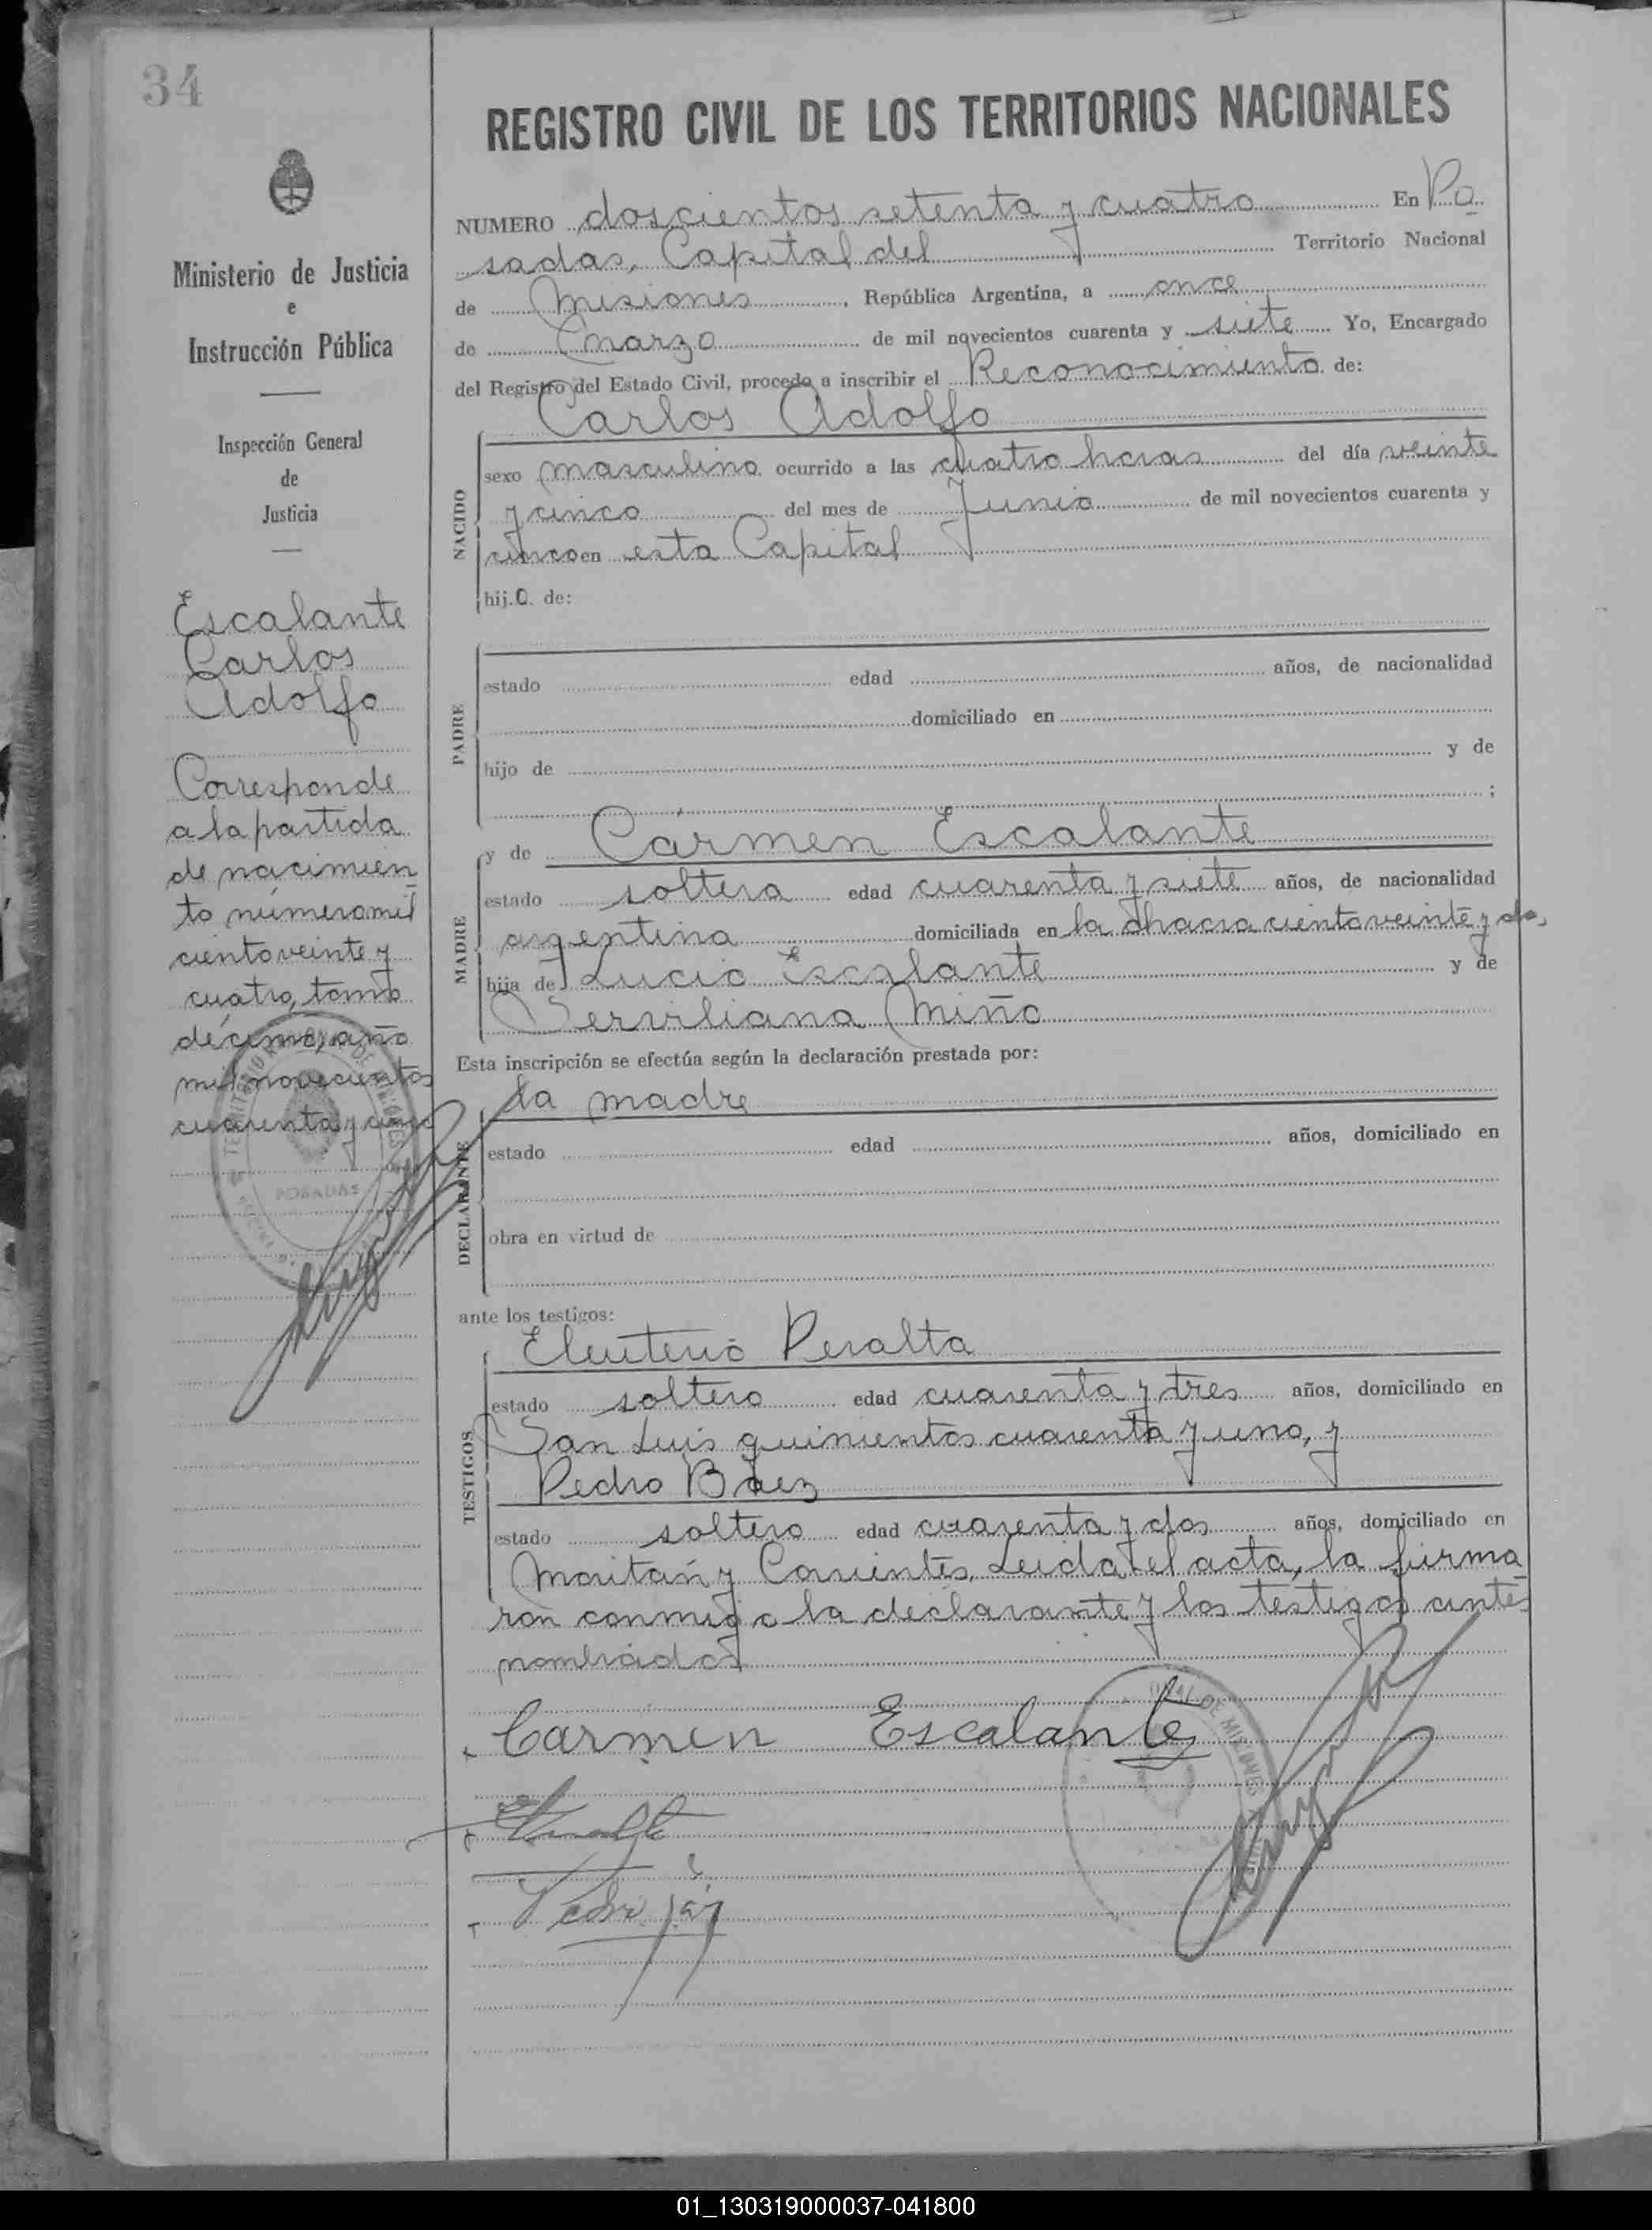 34
REGISTRO CIVIL DE LOS TERRITORIOS NACIONALES
Ministerio de Justicia
e
Instrucción Pública
Inspección General
de
Justicia
Escalante
Carlos
Adolfo
Corresponde
a la partida
de nacimien
to número mil
ciento veinte y
cuatro, tomo
décimo, año
mil novecientos
cuarenta y cinco
POSADAS
NUMERO doscientos setenta y cuatro En Po
sadas, Capital del Territorio Nacional
de Misiones, República Argentina, a once
de Marzo de mil novecientos cuarenta y siete Yo, Encargado
del Registro del Estado Civil, procedo a inscribir el Reconocimiento de:
Carlos Adolfo
NACIDO
sexo masculino ocurrido a las cuatro horas del día veinte
y cinco del mes de Junio de mil novecientos cuarenta y
cinco en esta Capital
hij.o. de:
PADRE
estado edad años, de nacionalidad
domiciliado en
hijo de y de
;
MADRE
y de Carmen Escalante
estado soltera edad cuarenta y siete años, de nacionalidad
argentina domiciliada en la chacra ciento veinte y dos
hija de Lucio Escalante y de
Serviliana Miño
Esta inscripción se efectúa según la declaración prestada por:
la madre
DECLARANTE
estado edad años, domiciliado en
obra en virtud de
ante los testigos:
Eleuterio Peralta
TESTIGOS
estado soltero edad cuarenta y tres años, domiciliado en
San Luis quinientos cuarenta y uno, y
Pedro Báez
estado soltero edad cuarenta y dos años, domiciliado en
y Corrientes. Leida el acta, la firma
ron conmigo la declarante y los testigos antes
nombrados
Carmen Escalante
Pedro
01_130319000037-041800